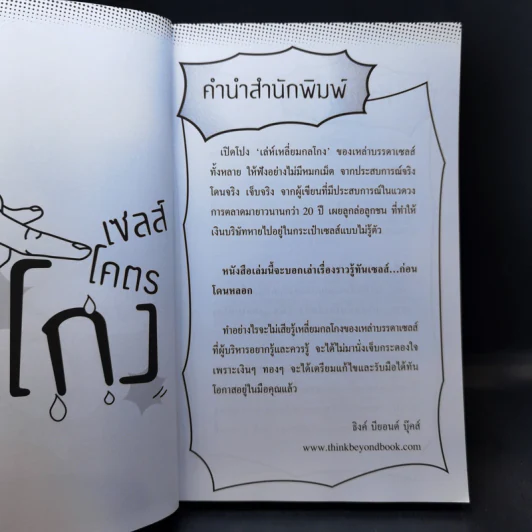 เซลส์
โคตร
โกง
คำนำสำนักพิมพ์
เปิดโปง ‘เล่ห์เหลี่ยมกลโกง’ ของเหล่าบรรดาเซลส์
ทั้งหลาย ให้ฟังอย่างไม่มีหมกเม็ด จากประสบการณ์จริง
โดนจริง เจ็บจริง จากผู้เขียนที่มีประสบการณ์ในแวดวง
การตลาดมายาวนานกว่า 20 ปี เผยลูกล่อลูกชน ที่ทำให้
เงินบริษัทหายไปอยู่ในกระเป๋าเซลส์แบบไม่รู้ตัว
หนังสือเล่มนี้จะบอกเล่าเรื่องราวรู้ทันเซลส์...ก่อน
โดนหลอก
ทำอย่างไรจะไม่เสียรู้เหลี่ยมกลโกงของเหล่าบรรดาเซลส์
ที่ผู้บริหารอยากรู้และควรรู้ จะได้ไม่มานั่งเจ็บกระดองใจ
เพราะเงินๆ ทองๆ จะได้เตรียมแก้ไขและรับมือได้ทัน
โอกาสอยู่ในมือคุณแล้ว
ธิงค์ บียอนด์ บุ๊คส์
www.thinkbeyondbook.com